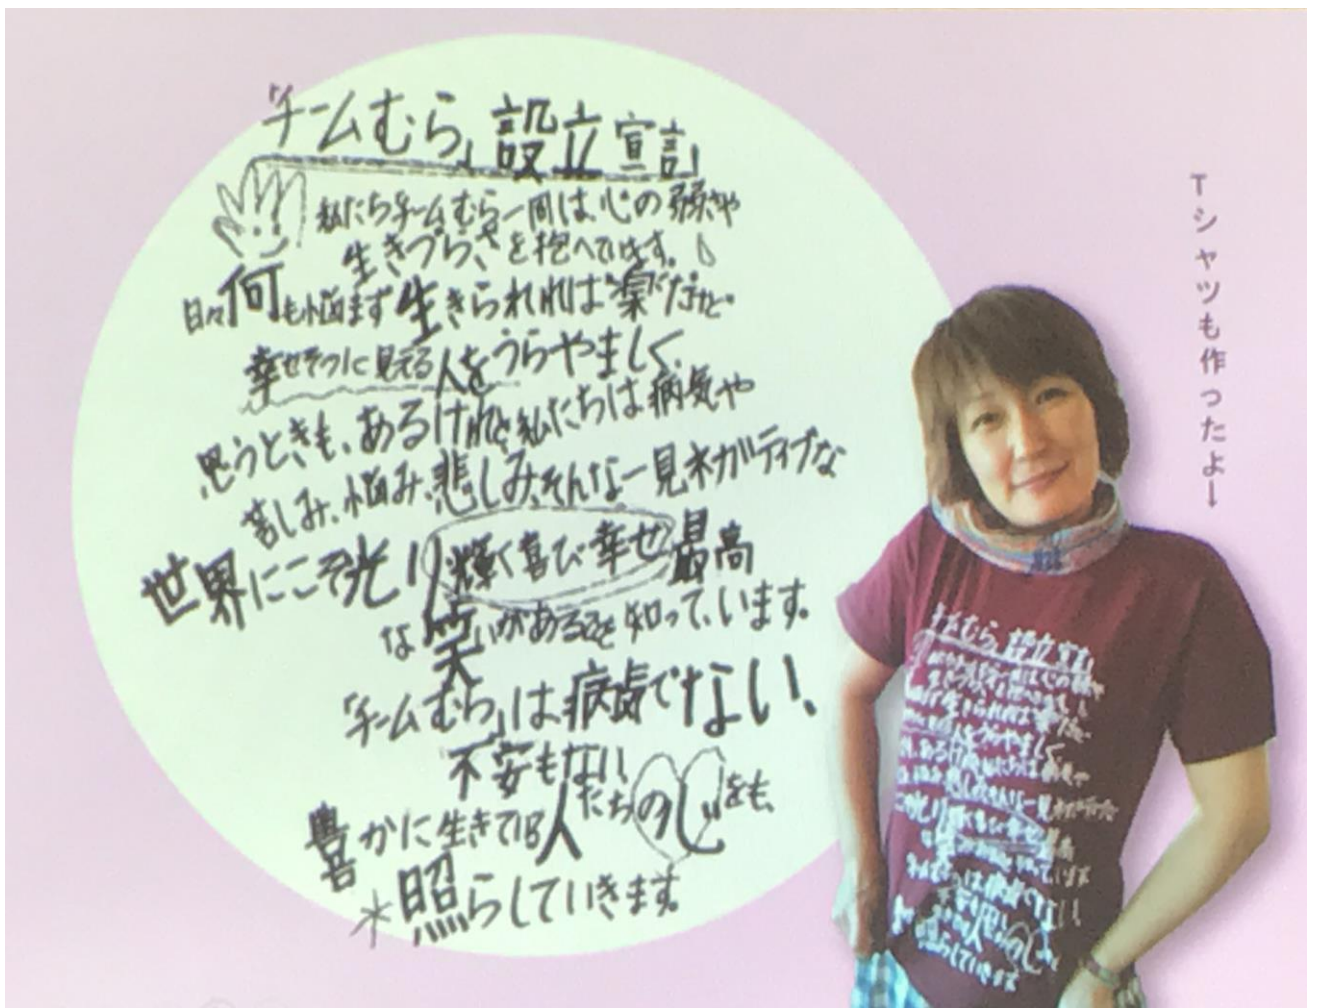 「チームむら」設立宣言
私たちチームむら一同は、心の弱さや
生きづらさを抱へています。
日々何も悩まず生きられれば“楽”だけど
幸せそうに見える人をうらやましく
思うときも、あるけれど私たちは病気や
苦しみ、悩み、悲しみ、そんな一見ネガティブな
世界にこそ光り輝く喜び幸せ最高
な笑いがあることを知っています。
「チームむら」は病気でない、
不安もない
豊かに生きている人たちの心をも、
照らしていきます。
Tシャツも作ったよー